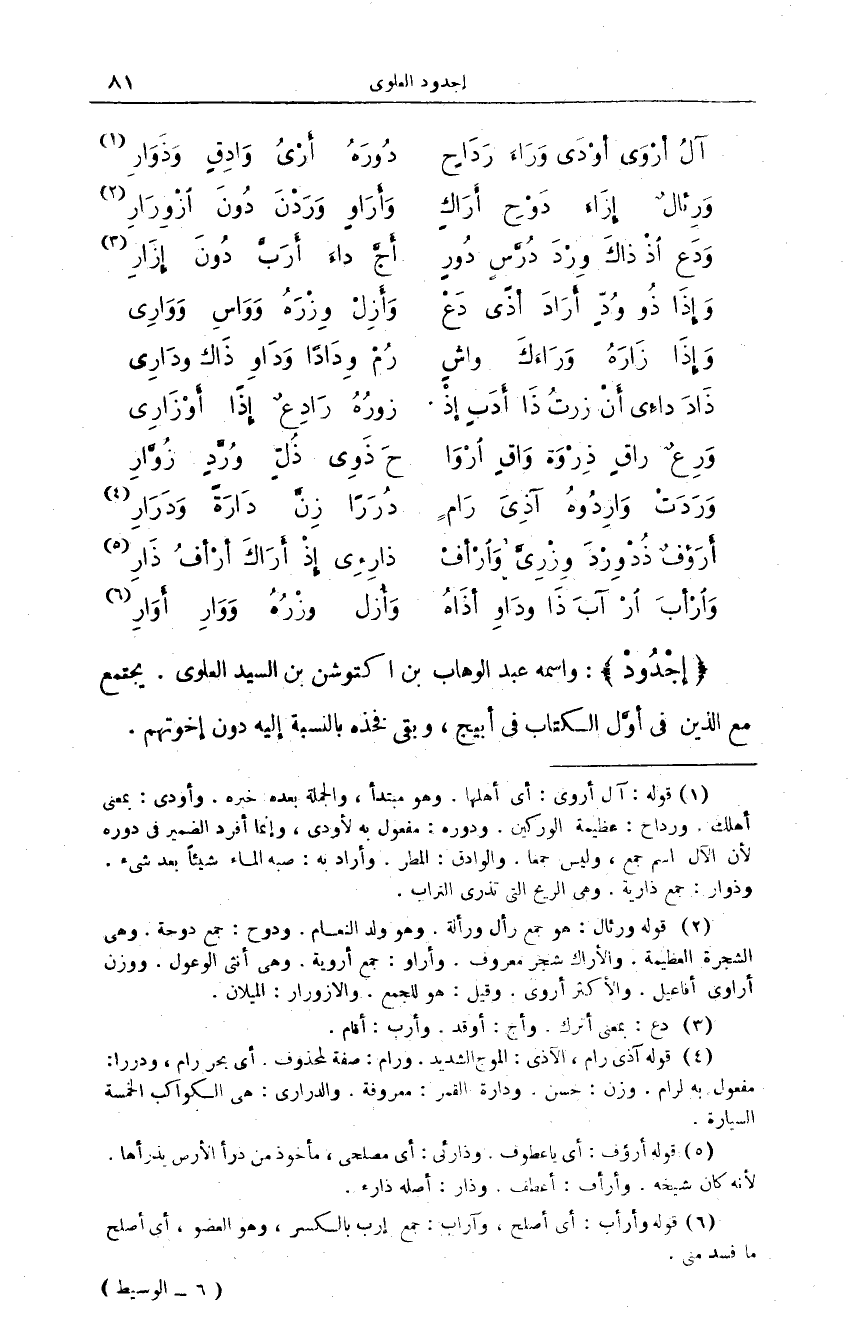 إجدود العلوى ٨١
آلُ أرْوَى أوْدَى وَرَاءَ رَدَاحِ دُورَهُ أرْىُ وَادِقٍ وَذَوَارِ (١)
وَرِئالٌ إزَاءَ دَوْحِ أَرَاكٍ وَأرَاوٍ وَرَدْنَ دُونَ ٱزْوِرَارِ (٢)
وَدَعِ اُذْ ذاكَ وِرْدَ دُرَّسِ دُورٍ أجَّ داءَ أرَبَّ دُونَ إزَارِ (٣)
وَإذَا ذُو وُدٍّ أرَادَ أذًى دَعْ وَأَزِلْ وِزْرَهُ وَوَاسِ وَوَارِى
وَإذَا زَارَهُ وَرَاءَكَ واشٍ رُمْ وِدَادًا وَدَاوِ ذَاكَ ودَارِى
ذَادَ داءِى أنْ زرتُ ذَا أدَبٍ إذْ زورُهُ رَادِعٌ إذًا أوْزَارِى
وَرِعٌ راقٍ ذِرْوَة وَاقٍ اُرْوَا حَ ذَوِى ذُلٍّ وُرَّدٍ زُوَّارِ
وَرَدَتْ وَارِدُوهُ آذِىَ رَامٍ دُرَرًا زِنَّ دَارَةً وَدَرَارِ (٤)
أرَؤفٌ ذُدْوِرْدَ وِزْرِىَّ وَٱرْأفْ ذارِءِى إذْ أَرَاكَ أرْأفُ ذَارِ (٥)
وَٱرْأبَ ٱرْ آبَ ذَا ودَاوِ أذَاهُ وَأَزل وِزْرَهُ وَوَارِ أوَارِ (٦)
﴿ إجْدُودْ ﴾ : واسمه عبد الوهاب بن اكتوشن بن السيد العلوى . يجتمع
مع الذين فى أوّل الكتاب فى أبيج ، وبقى فخذه بالنسبة إليه دون إخوتهم .
(١) قوله : آل أروى : أى أهلها . وهو مبتدأ ، والجملة بعده خبره . وأودى : بمعنى
أهلك . ورداح : عظيمة الوركين . ودوره : مفعول به لأودى ، وإنما أفرد الضمير فى دوره
لأن الآل اسم جمع ، وليس جمعا . والوادق : المطر . وأراد به : صبه الماء شيئاً بعد شىء .
وذوار : جمع ذارية . وهى الريح التى تذرى التراب .
(٢) قوله ورئال : هو جمع رأل ورألة . وهو ولد النعام . ودوح : جمع دوحة . وهى
الشجرة العظيمة . والأراك شجر معروف . وأراو : جمع أروية . وهى أنثى الوعول . ووزن
أراوى أفاعيل . والأكثر أروى . وقيل : هو للجمع . والازورار : الميلان .
(٣) دع : بمعنى أترك . وأج : أوقد . وأرب : أقام .
(٤) قوله آذى رام ، الآذى : الموج الشديد . ورام : صفة لمحذوف . أى بحر رام ، ودررا:
مفعول به لرام . وزن : حسن . ودارة القمر : معروفة . والدرارى : هى الكواكب الخمسة
السيارة .
(٥) قوله أرؤف : أى ياعطوف . وذارئى : أى مصلحى ، مأخوذ من ذرأ الأرس يذرأها .
لأنه كان شيخه . وأرأف : أعطف . وذار : أصله ذارء .
(٦) قوله وأرأب : أى أصلح ، وآراب : جمع إرب بالكسر ، وهو العضو ، أى أصلح
ما فسد منى .
( ٦ ــ الوسيط )